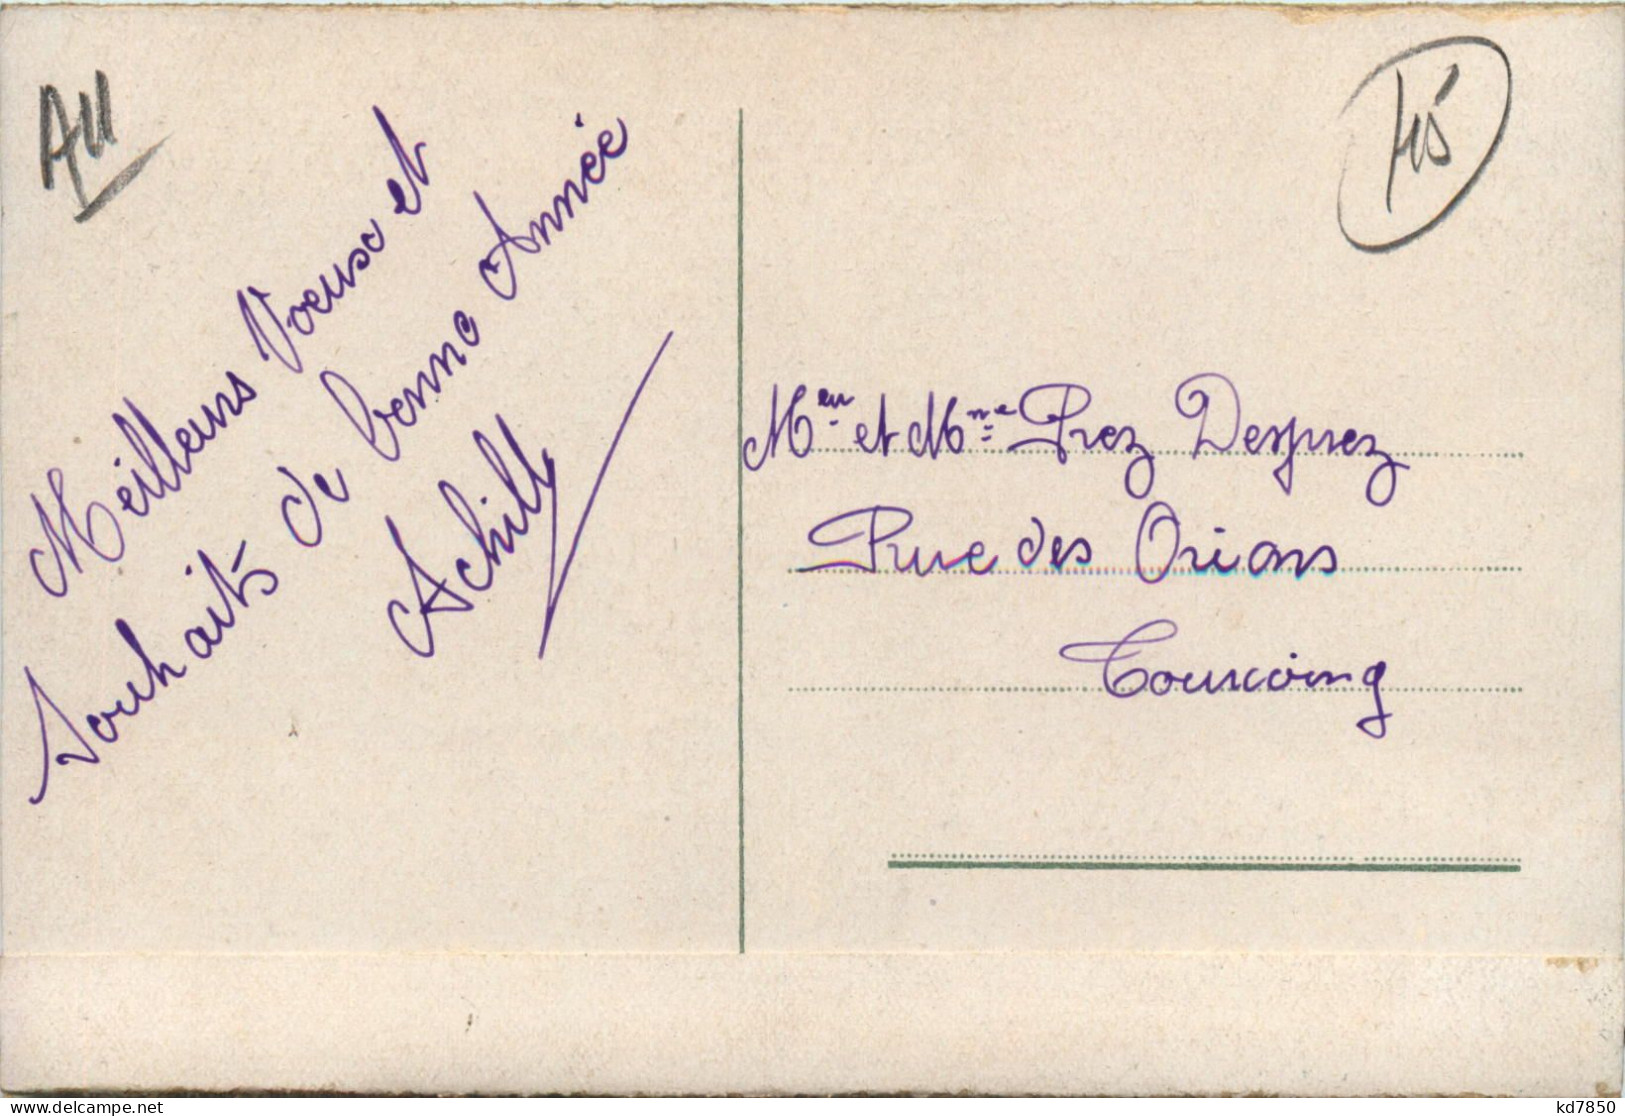 Meilleurs Voeux et
Souhaits de bonne Année
Achille
Meu et Mme Prez Desprez
Rue des Orions
Tourcoing
www.delcampe.net
kd7850